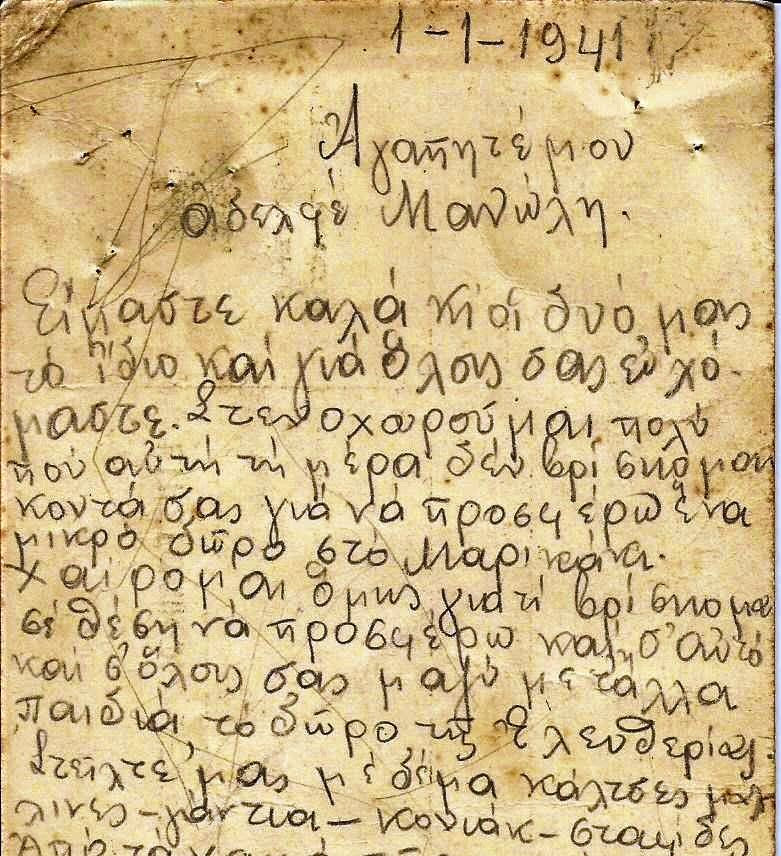 1-1-1941
Ἀγαπητέ μου
ἀδελφέ Μανώλη.
Εἴμαστε καλά κι οἱ δυό μας
τό ἴδιο καί γιά ὅλους σας εὐχό-
μαστε. Στενοχωροῦμαι πολύ
πού αὐτή τή μέρα δέν βρίσκομαι
κοντά σας γιά νά προσφέρω ἕνα
μικρό δῶρο στό Μαρικάκι.
Χαίρομαι ὅμως γιατί βρίσκομαι
σέ θέση νά προσφέρω καί σ' αὐτό
καί σ' ὅλους σας μαζύ μέ τἄλλα
παιδιά, τό δῶρο τῆς Ἐλευθερίας.
Στείλτε μας μέ δέμα κάλτσες μάλ-
λινες - γάντια - κονιάκ - σταφίδες
Ἀπό τά